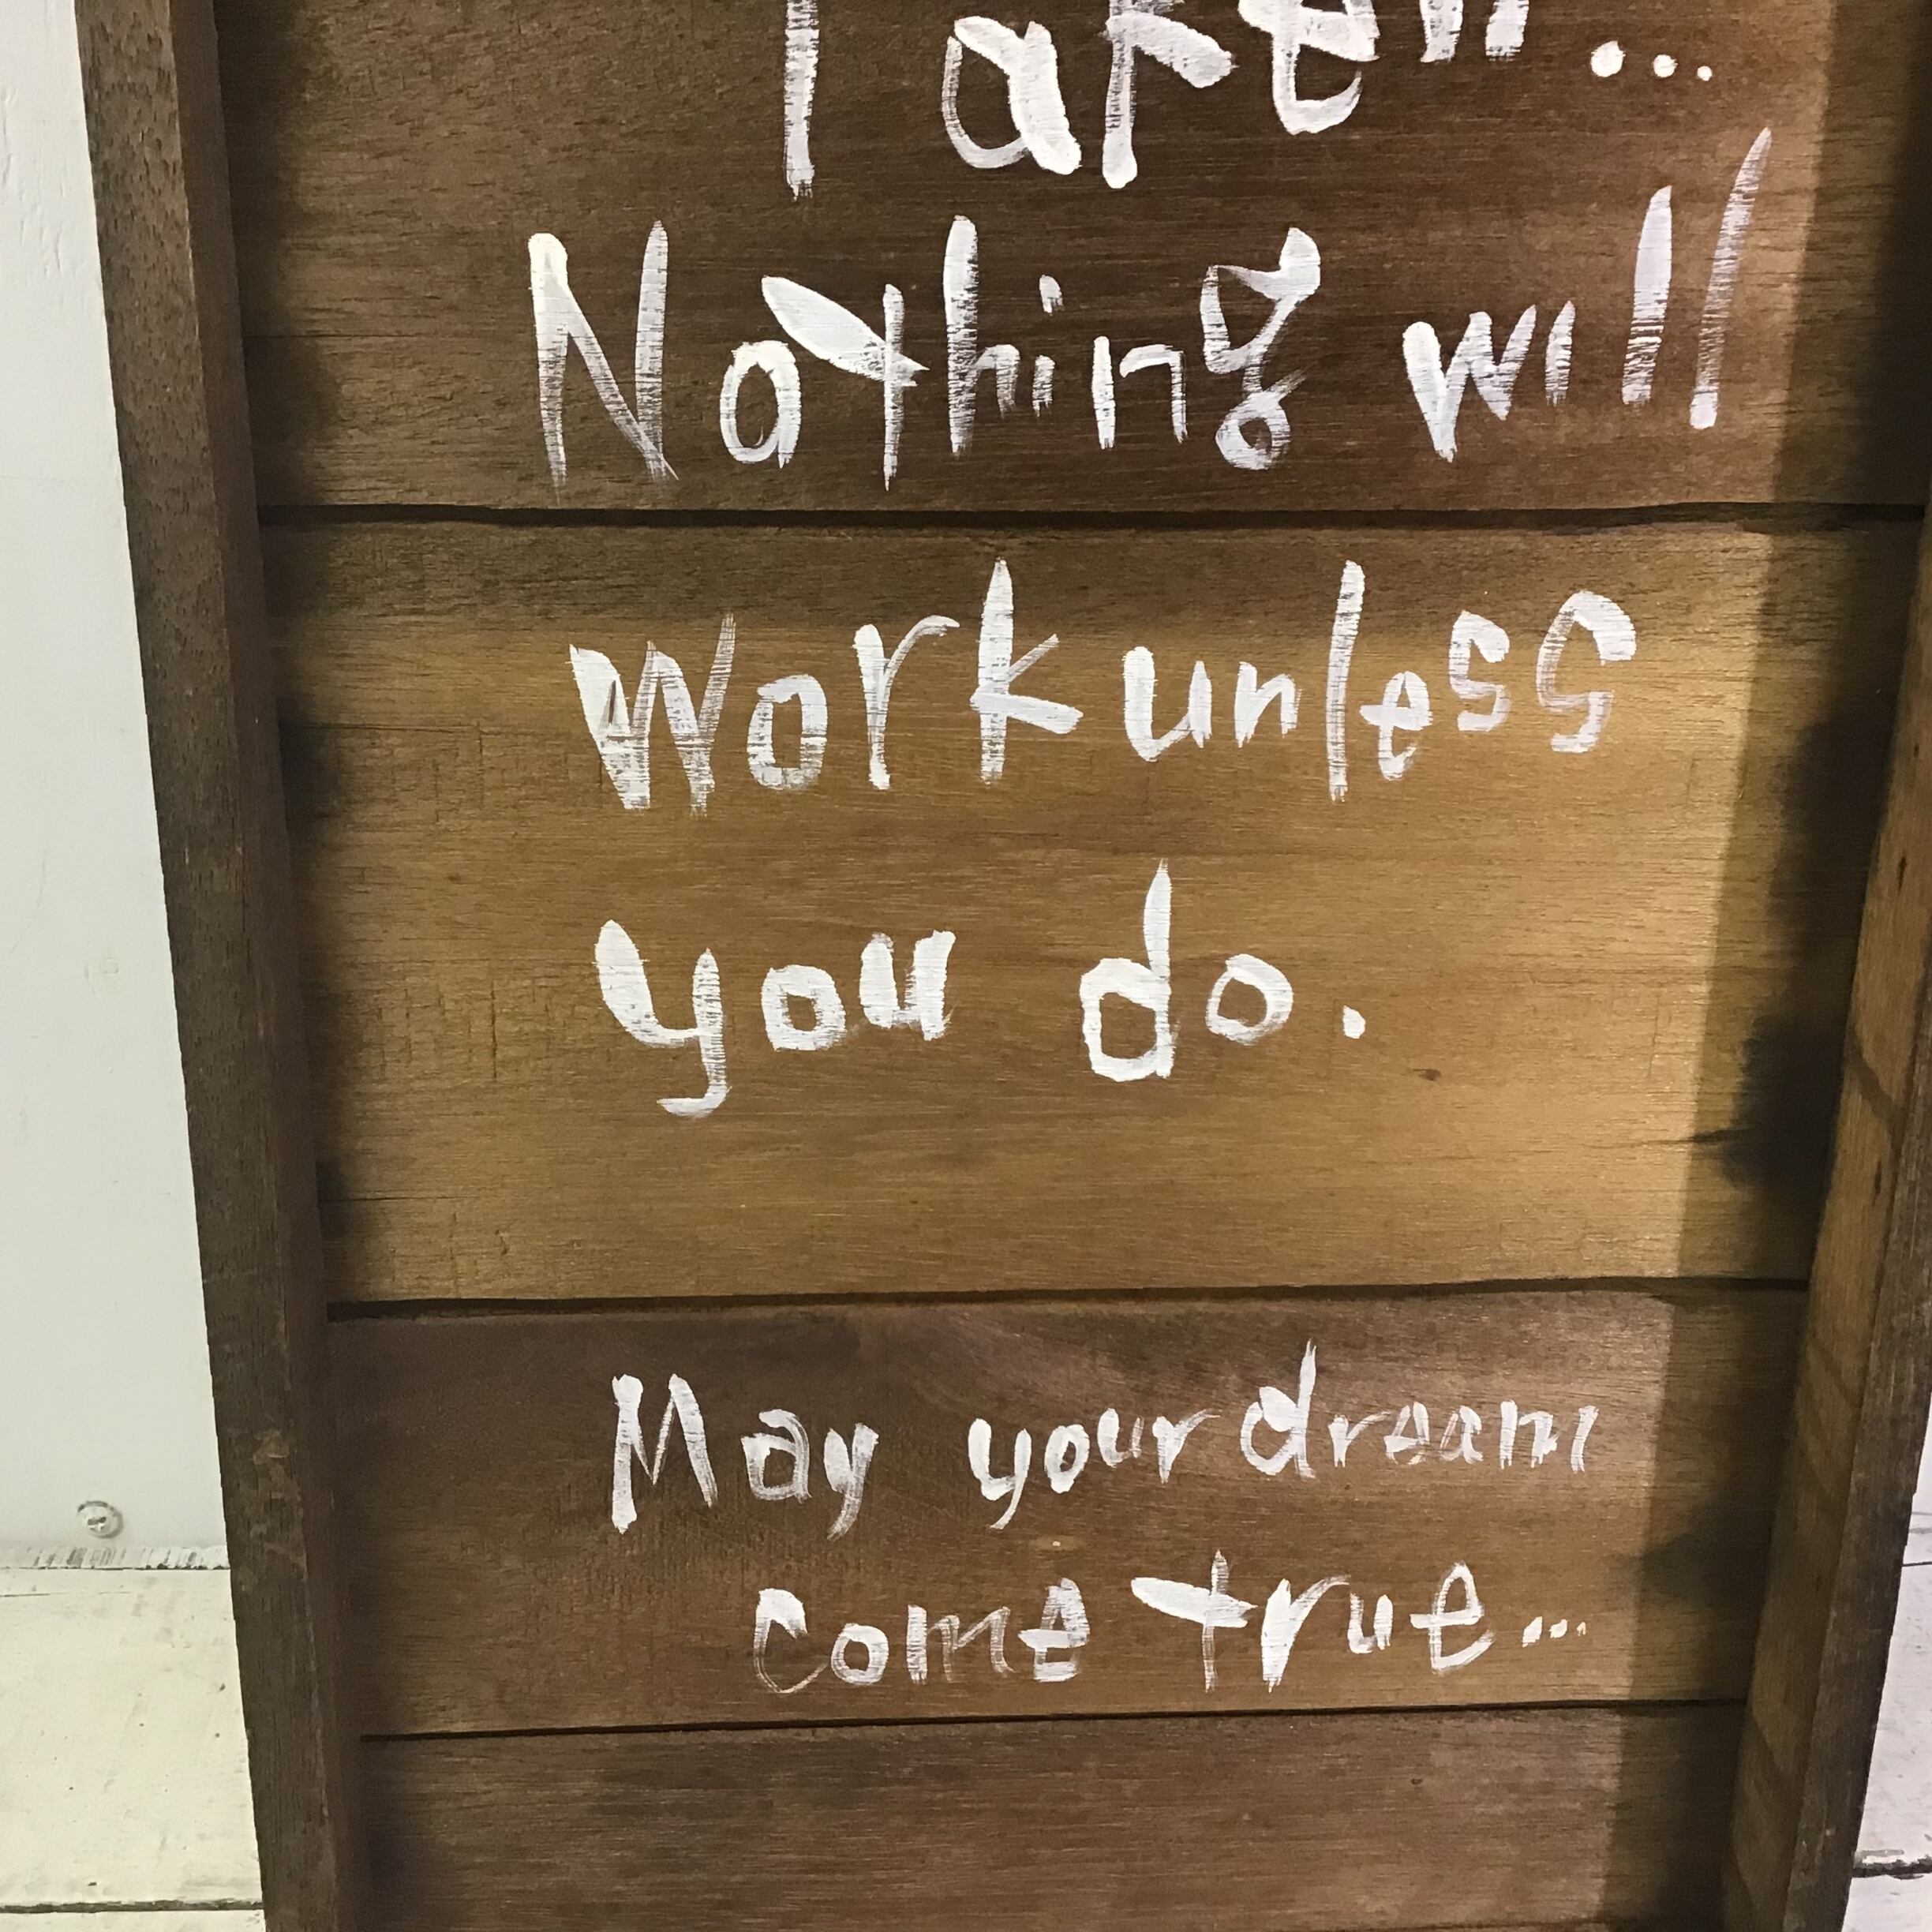 Taken...
Nothing will
work unless
you do.
May your dream
come true...